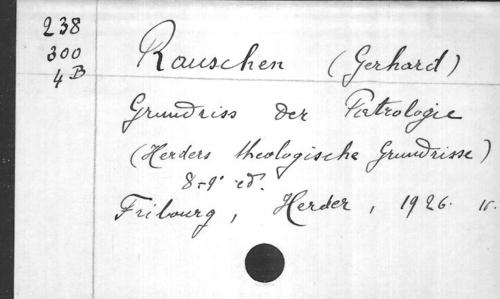 238
300
4 B
Rauschen (Gerhard)
Grundriss der Patrologie
(Herders theologische Grundrisse)
8-9. ed.
Fribourg, Herder, 1926.